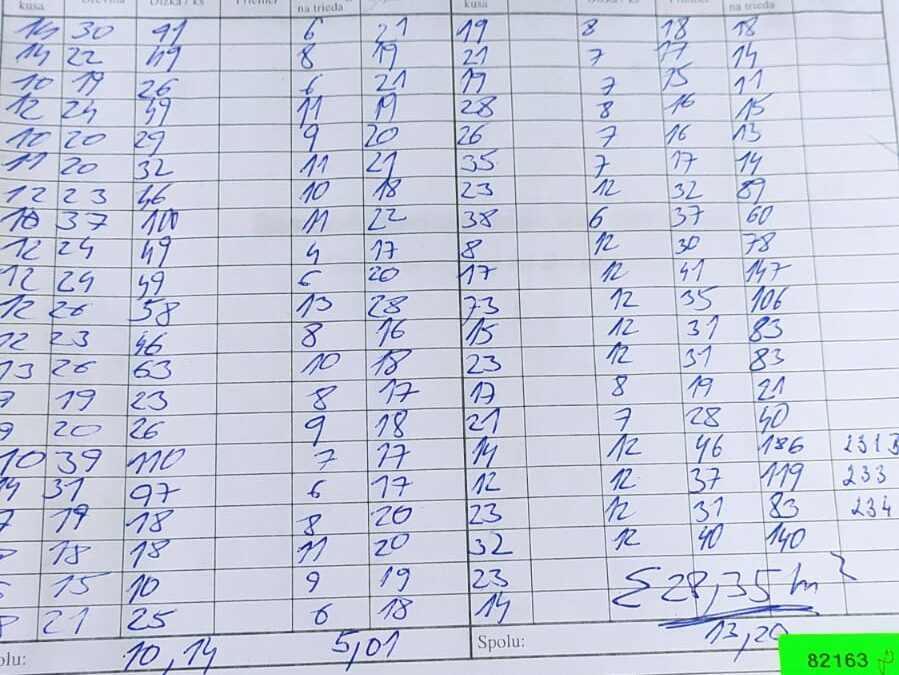 kusa Dĺžka / ks na trieda kusa na trieda
14 30 91 6 21 19 8 18 18
14 22 49 8 19 21 7 17 14
10 19 26 6 21 19 7 15 11
12 24 49 11 19 28 8 16 15
10 20 29 9 20 26 7 16 13
11 20 32 11 21 35 7 17 14
12 23 46 10 18 23 12 32 89
10 37 100 11 22 38 6 37 60
12 24 49 4 17 8 12 30 78
12 24 49 6 20 17 12 41 147
12 26 58 13 28 73 12 35 106
12 23 46 8 16 15 12 31 83
13 26 63 10 18 23 12 31 83
19 23 8 17 17 8 19 21
9 20 26 9 18 21 7 28 40
10 39 110 7 17 14 12 46 186
14 31 97 6 17 12 12 37 119 233
19 18 8 20 23 12 31 83 234
18 18 11 20 32 12 40 140
15 10 9 19 23 Σ 28,35 m³
21 25 6 18 14
olu: 10,14 5,01 Spolu: 13,20
82163